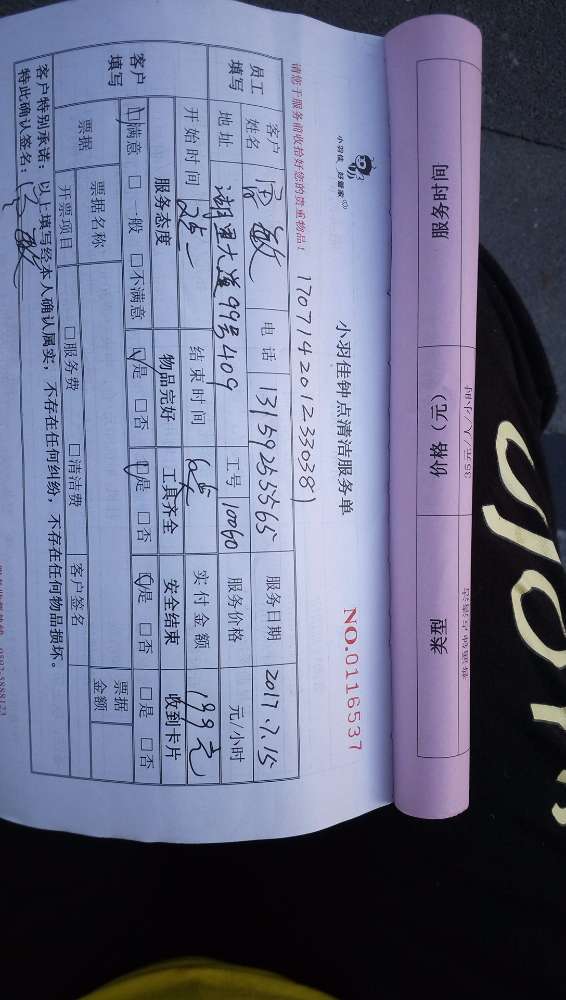 服务时间 价格（元） 类型
35元/人/小时
小羽佳 好管家
小羽佳钟点清洁服务单
请您于服务前收拾好您的贵重物品！
NO.0116537
170714201233038)
员工填写 客户姓名 电话 13159255565 服务日期 2017.7.15
地址 湖里大道99号409 工号 10060 服务价格 元/小时
开始时间 2点 结束时间 6点 实付金额 199元
客户填写 服务态度 物品完好 工具齐全 安全结束 收到卡片
☑满意 □一般 □不满意 ☑是 □否 ☑是 □否 ☑是 □否 □是 □否
票据 票据名称 票据金额
开票项目 □服务费 □清洁费 客户签名
客户特别承诺：以上填写经本人确认属实，不存在任何纠纷，不存在任何物品损坏。
特此确认签名：